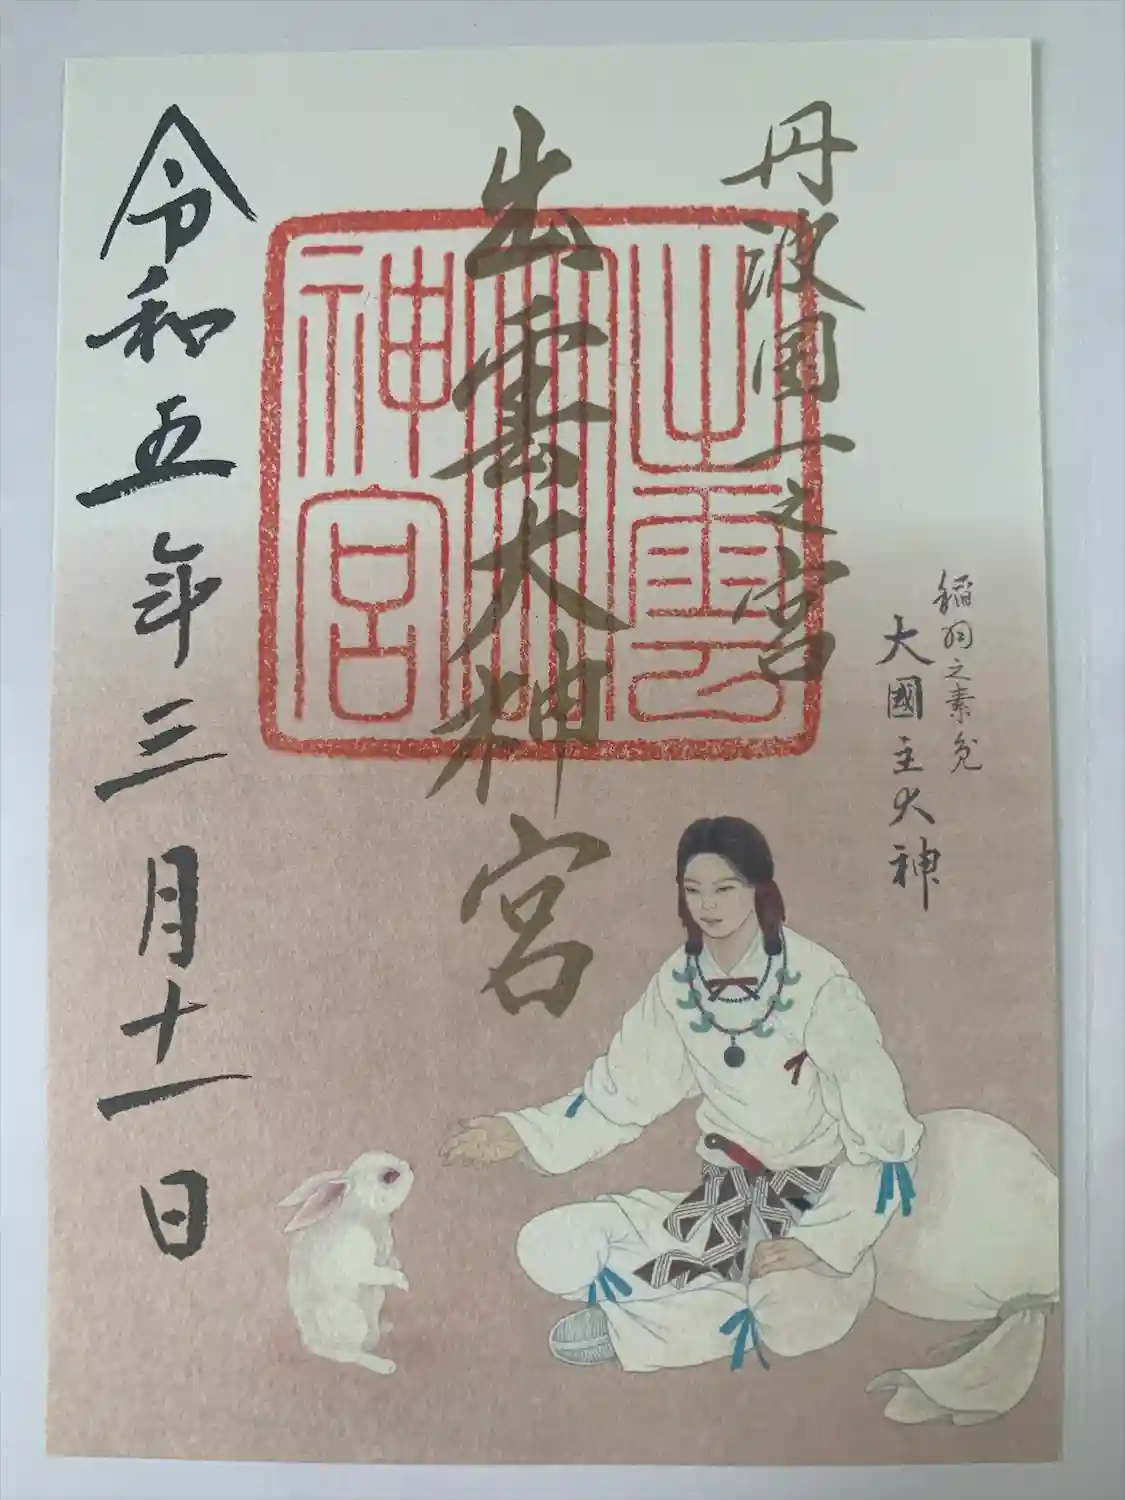 稲羽之素兎
大國主大神
丹波国一之宮
出雲大神宮
出雲大神宮
令和五年三月十一日